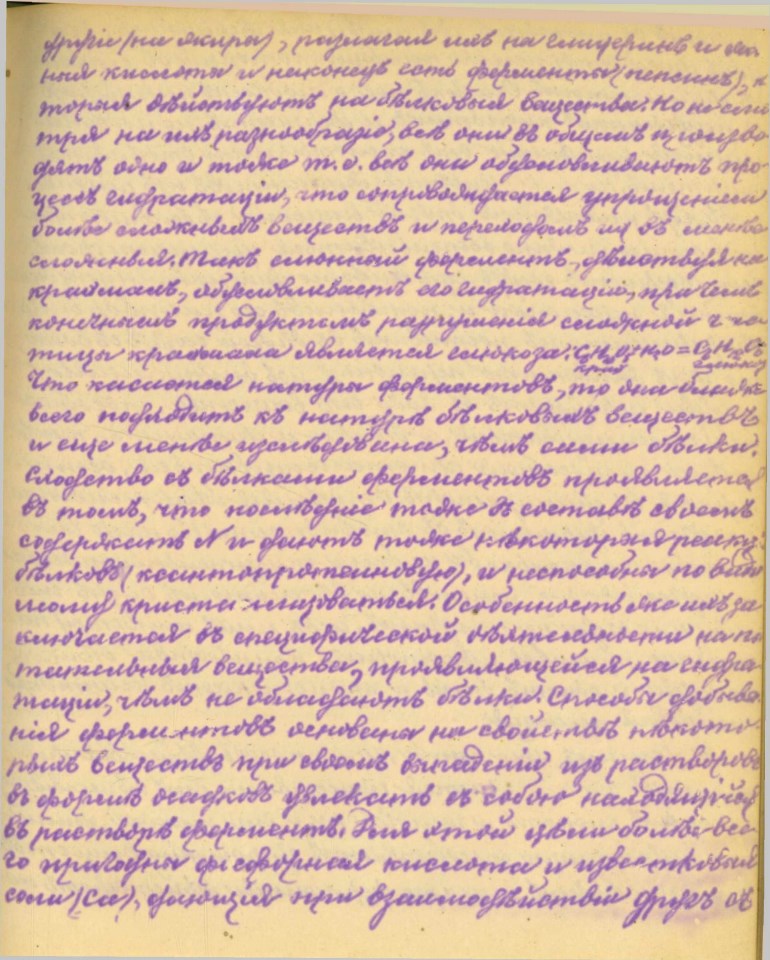 другіе (на жиры), разлагая ихъ на глицеринъ и
ныя кислоты и наконецъ есть ферменты (пепсинъ), к
торыя дѣйствуютъ на бѣлковыя вещества. Но не смо
тря на ихъ разнообразіе, всѣ они въ общемъ произво
дятъ одно и тоже т. е. всѣ они обусловливаютъ про
цессъ гидратаціи, что сопровождается упрощеніемъ
болѣе сложныхъ веществъ и переходомъ их въ менѣе
сложныя. Такъ слюнной ферментъ, дѣйствуя на
крахмалъ, обусловливаетъ его гидратацію, при чемъ
конечнымъ продуктомъ разрушенія сложной ча
тицы крахмала является глюкоза:
Что касается натуры ферментовъ, то она ближе
всего подходитъ къ натурѣ бѣлковыхъ веществъ
и еще менѣе изслѣдована, чѣмъ сами бѣлки.
Сходство съ бѣлками ферментовъ проявляется
въ томъ, что послѣдніе тоже въ составѣ своемъ
содержатъ N и даютъ тоже нѣкоторыя реакц.
бѣлковъ (ксантопротеиновую), и неспособны по види
мому кристаллизоваться. Особенность же ихъ за
ключается въ специфической дѣятельности на пи
тательныя вещества, проявляющейся на гидра
таціи, чѣмъ не обладаютъ бѣлки. Способы добыва
нія ферментовъ основаны на свойствѣ нѣкото
рыхъ веществъ при своемъ выпаденіи изъ растворовъ
въ формѣ осадковъ увлекать съ собою находящійся
въ растворѣ ферментъ. Для этой цѣли болѣе все
го пригодны фосфорная кислота и известковыя
соли (Ca), дающія при взаимодѣйствіи другъ съ